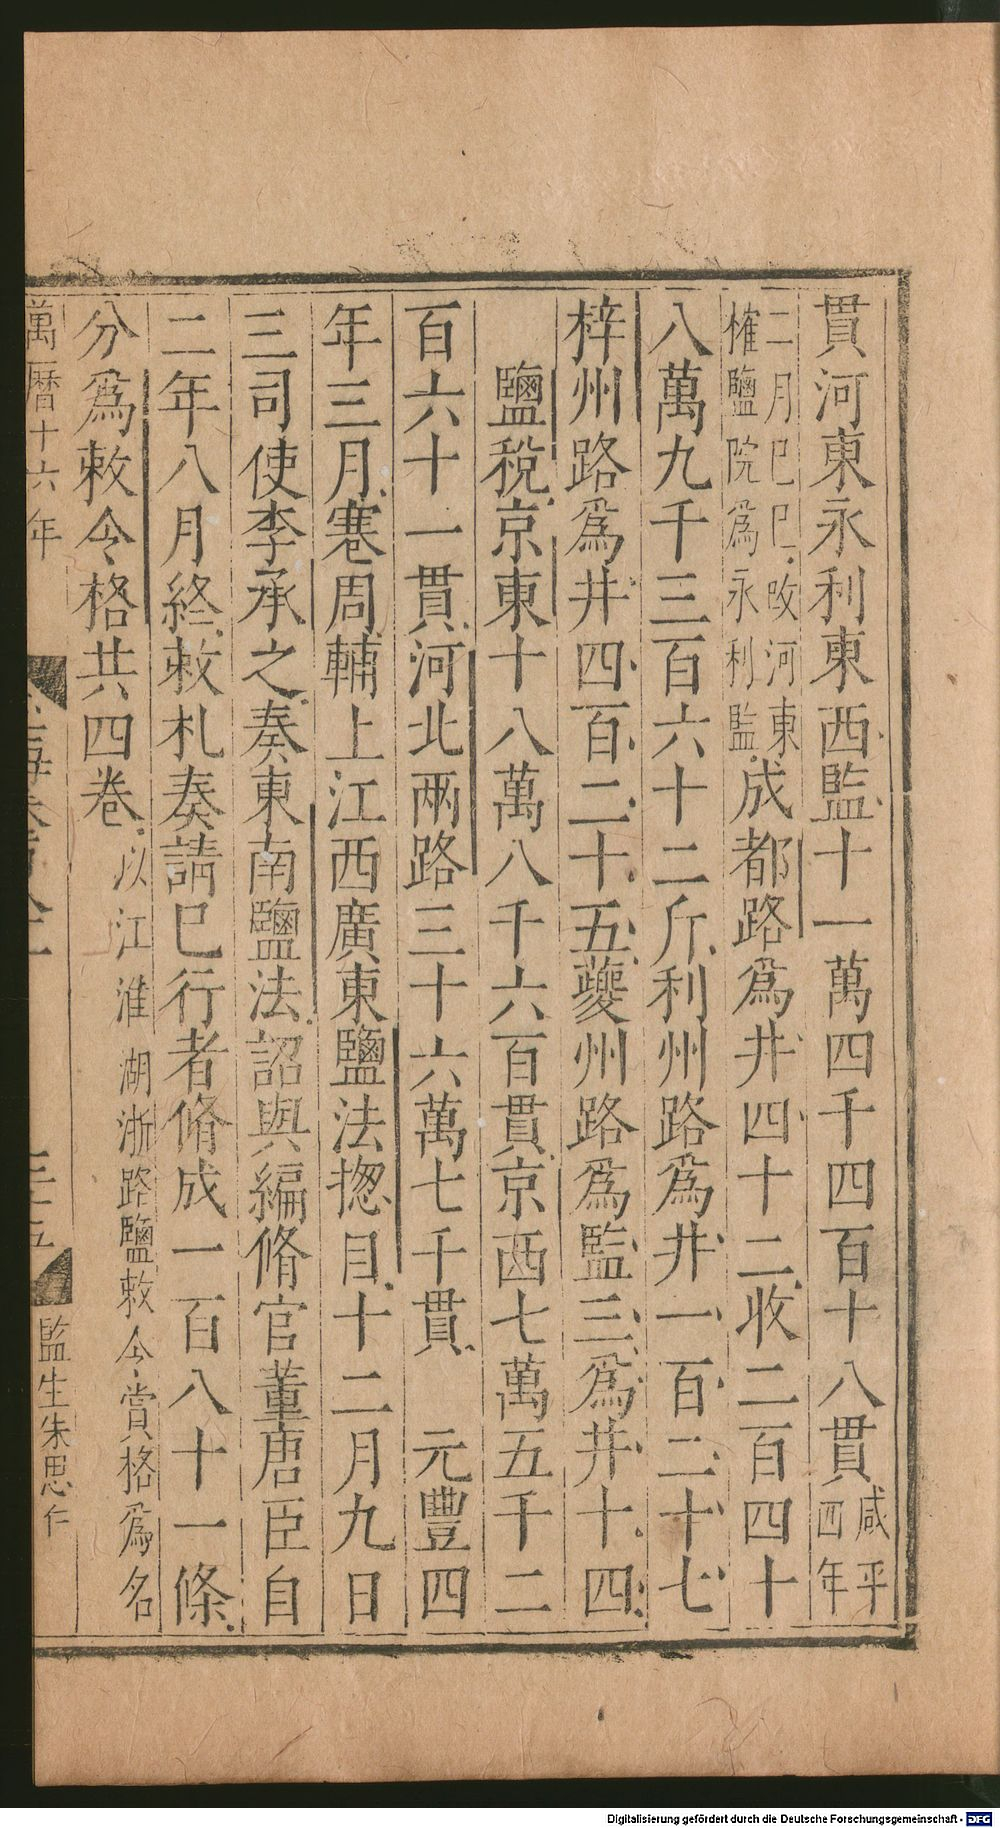 貫河東永利東西監十一萬四千四百十八貫咸平四年
二月己巳改河東榷鹽院爲永利監成都路爲井四十二收二百四十
八萬九千三百六十二斤利州路爲井一百二十七
梓州路爲井四百二十五夔州路爲監三爲井十四
鹽稅京東十八萬八千六百貫京西七萬五千二
百六十一貫河北兩路三十六萬七千貫 元豐四
年三月蹇周輔上江西廣東鹽法揔目十二月九日
三司使李承之奏東南鹽法詔與編脩官董唐臣自
二年八月終敕札奏請已行者脩成一百八十一條
分爲敕令格共四卷以江淮湖浙路鹽敕令賞格爲名
萬曆十六年 三十五 監生朱思仁
Digitalisierung gefördert durch die Deutsche Forschungsgemeinschaft - DFG